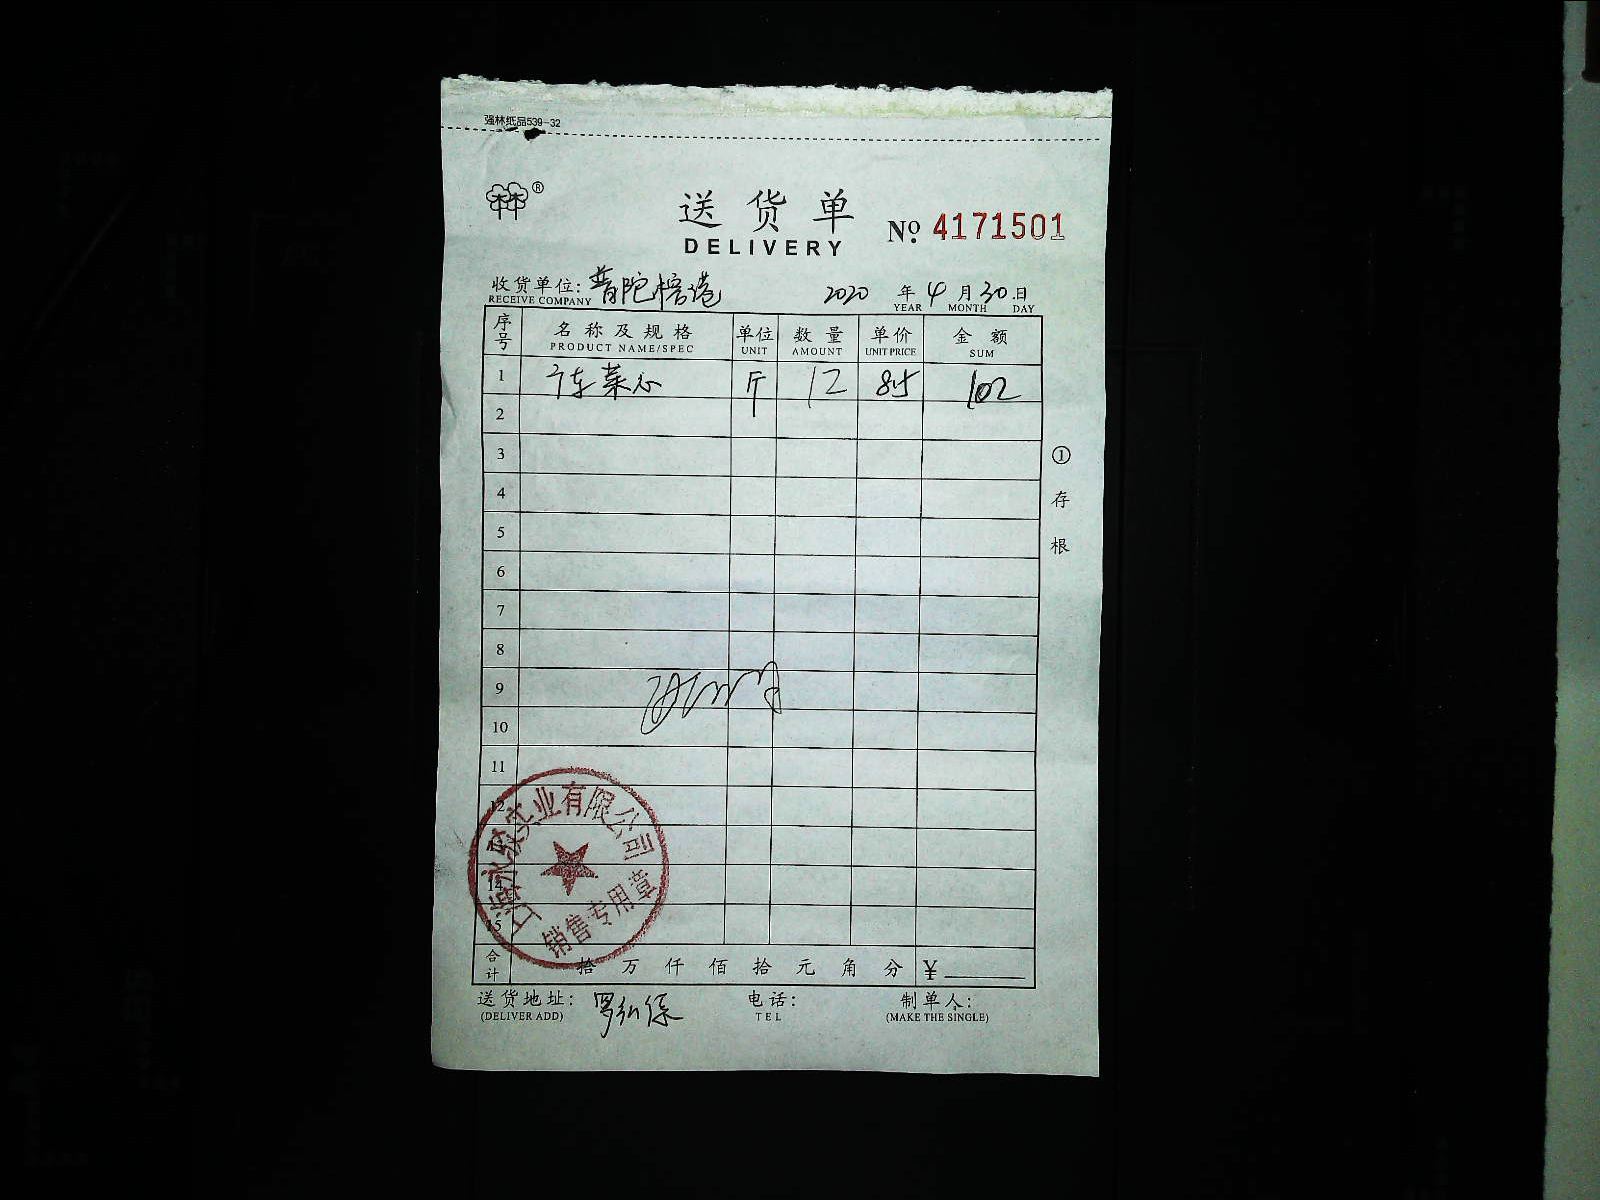 强林纸品539-32
林林®
送货单
DELIVERY
№ 4171501
收货单位: 普陀榕港 2020 年 4 月 30 日
RECEIVE COMPANY YEAR MONTH DAY
序号 名称及规格 单位 数量 单价 金额
PRODUCT NAME/SPEC UNIT AMOUNT UNIT PRICE SUM
1 广东菜心 斤 12 8.5 102
2
3
4
5
6
7
8
9
10
11
12
14
15
① 存根
上海永骏实业有限公司
销售专用章
合计 拾 万 仟 佰 拾 元 角 分 ¥
送货地址: 电话: 制单人:
(DELIVER ADD) TEL (MAKE THE SINGLE)